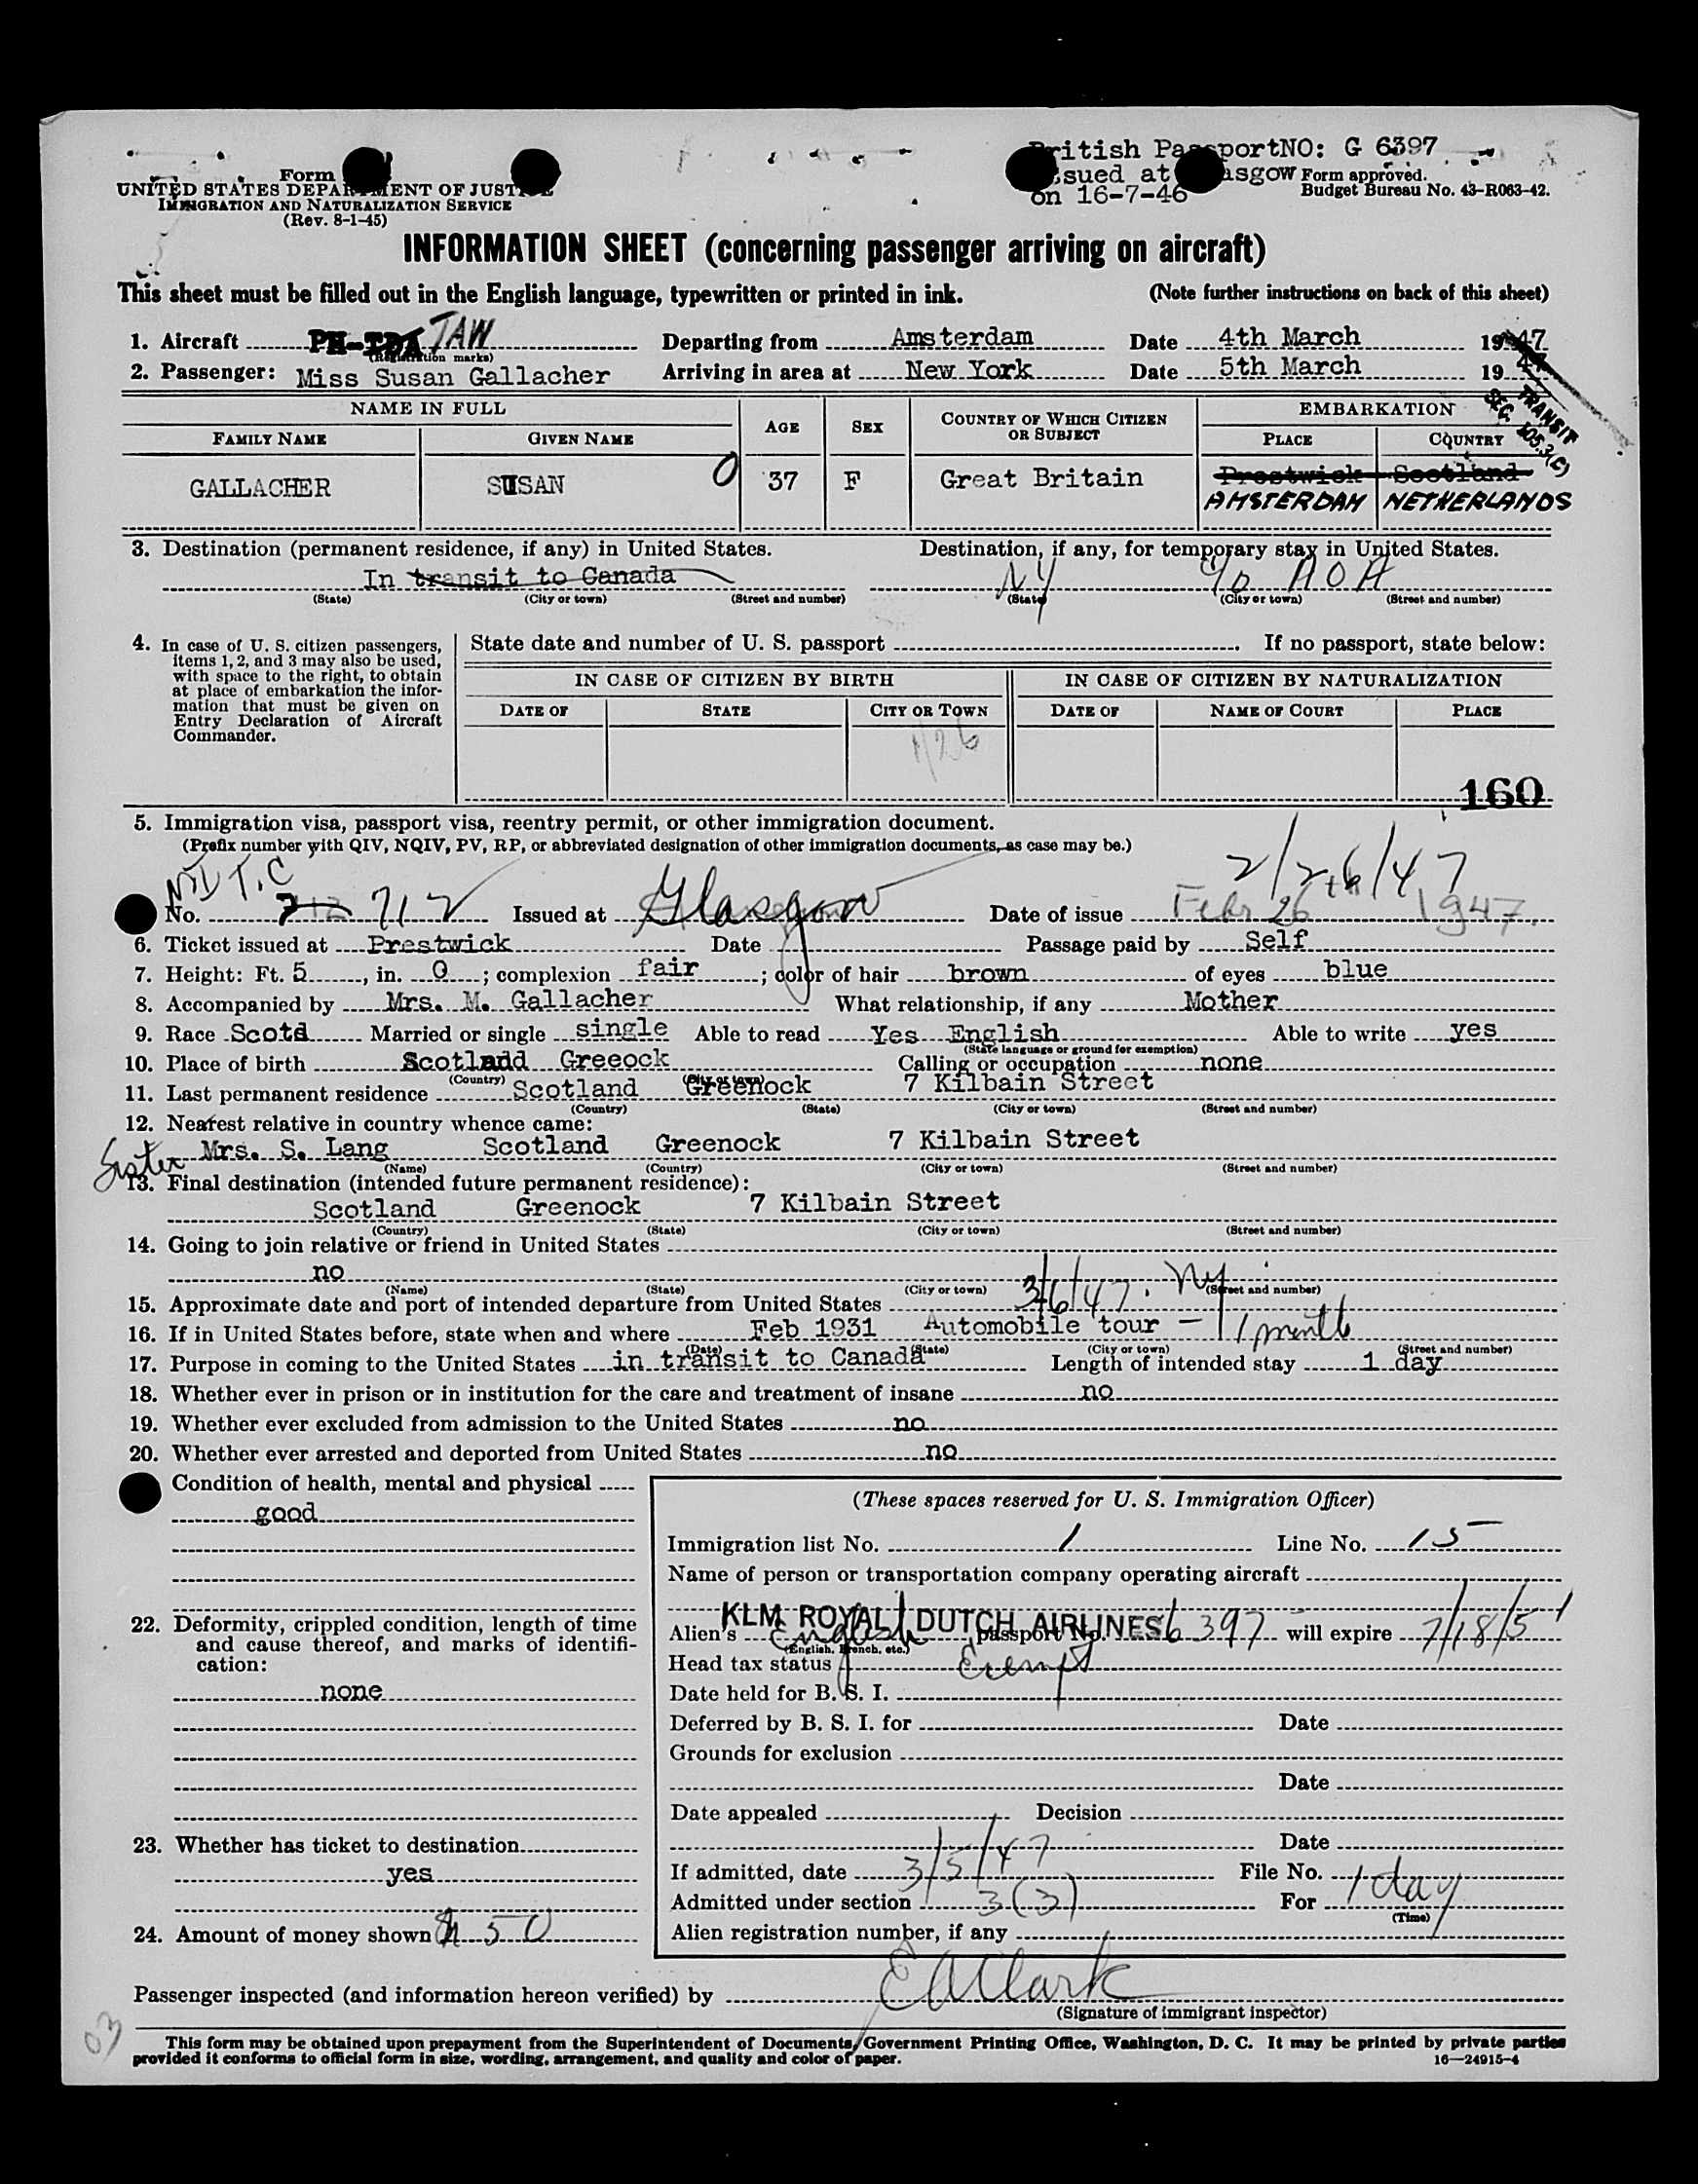 British Passport NO: G 6397
Form
issued at Glasgow Form approved.
UNITED STATES DEPARTMENT OF JUSTICE
on 16-7-46 Budget Bureau No. 43-R063-42.
IMMIGRATION AND NATURALIZATION SERVICE
(Rev. 8-1-45)
INFORMATION SHEET (concerning passenger arriving on aircraft)
This sheet must be filled out in the English language, typewritten or printed in ink. (Note further instructions on back of this sheet)
1. Aircraft PH-TDA TAW Departing from Amsterdam Date 4th March 1947
(Registration marks)
2. Passenger: Miss Susan Gallacher Arriving in area at New York Date 5th March 1947
TRANSIT
SEC. 105.3(C)
NAME IN FULL AGE SEX COUNTRY OF WHICH CITIZEN OR SUBJECT EMBARKATION
FAMILY NAME GIVEN NAME PLACE COUNTRY
GALLACHER SUSAN 0 37 F Great Britain Prestwick Scotland
AMSTERDAM NETHERLANDS
3. Destination (permanent residence, if any) in United States. Destination, if any, for temporary stay in United States.
In transit to Canada NY c/o AOA
(State) (City or town) (Street and number) (State) (City or town) (Street and number)
4. In case of U. S. citizen passengers, items 1, 2, and 3 may also be used, with space to the right, to obtain at place of embarkation the information that must be given on Entry Declaration of Aircraft Commander.
State date and number of U. S. passport If no passport, state below:
IN CASE OF CITIZEN BY BIRTH IN CASE OF CITIZEN BY NATURALIZATION
DATE OF STATE CITY OR TOWN DATE OF NAME OF COURT PLACE
160
5. Immigration visa, passport visa, reentry permit, or other immigration document.
(Prefix number with QIV, NQIV, PV, RP, or abbreviated designation of other immigration documents, as case may be.)
T.C 2/26/47
No. 712 712 Issued at Glasgow Date of issue Febr 26th 1947.
6. Ticket issued at Prestwick Date Passage paid by Self
7. Height: Ft. 5, in. 0; complexion fair; color of hair brown of eyes blue
8. Accompanied by Mrs. M. Gallacher What relationship, if any Mother
9. Race Scotd Married or single single Able to read Yes English Able to write yes
(State language or ground for exemption)
10. Place of birth Scotland Greeock Calling or occupation none
(Country) (City or town)
11. Last permanent residence Scotland Greenock 7 Kilbain Street
(Country) (State) (City or town) (Street and number)
12. Nearest relative in country whence came:
Sister Mrs. S. Lang Scotland Greenock 7 Kilbain Street
(Name) (Country) (City or town) (Street and number)
13. Final destination (intended future permanent residence):
Scotland Greenock 7 Kilbain Street
(Country) (State) (City or town) (Street and number)
14. Going to join relative or friend in United States
no
(Name) (State) (City or town) (Street and number)
15. Approximate date and port of intended departure from United States 3/6/47. Ny
16. If in United States before, state when and where Feb 1931 Automobile tour - 1 month
(Date) (State) (City or town) (Street and number)
17. Purpose in coming to the United States in transit to Canada Length of intended stay 1 day
18. Whether ever in prison or in institution for the care and treatment of insane no
19. Whether ever excluded from admission to the United States no
20. Whether ever arrested and deported from United States no
Condition of health, mental and physical
good
22. Deformity, crippled condition, length of time and cause thereof, and marks of identification:
none
23. Whether has ticket to destination
yes
24. Amount of money shown $ 50
(These spaces reserved for U. S. Immigration Officer)
Immigration list No. 1 Line No. 15
Name of person or transportation company operating aircraft
KLM ROYAL DUTCH AIRLINES
Alien's English passport No. 6397 will expire 7/18/51
(English, French, etc.)
Head tax status Exempt
Date held for B. S. I.
Deferred by B. S. I. for Date
Grounds for exclusion
Date
Date appealed Decision
Date
If admitted, date 3/5/47 File No.
Admitted under section 3(3) For 1 day
(Time)
Alien registration number, if any
Passenger inspected (and information hereon verified) by E A Clark
(Signature of immigrant inspector)
03
This form may be obtained upon prepayment from the Superintendent of Documents, Government Printing Office, Washington, D. C. It may be printed by private parties
provided it conforms to official form in size, wording, arrangement, and quality and color of paper. 16—24915-4